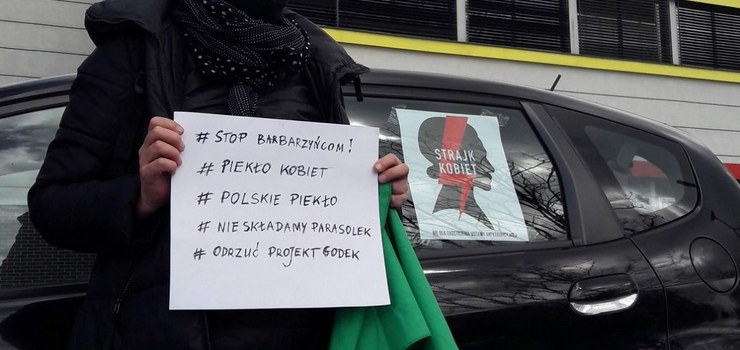 # STOP BARBARZYŃCOM!
# PIEKŁO KOBIET
# POLSKIE PIEKŁO
# NIE SKŁADAMY PARASOLEK
# ODRZUĆ PROJEKT GODEK
STRAJK
KOBIET